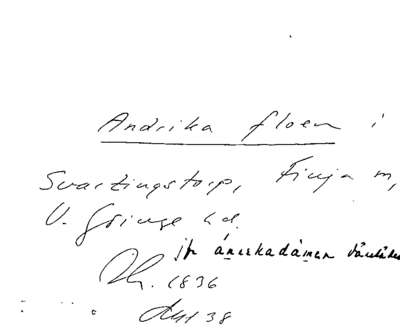 Andrika floen i
Svartingstorp, Finja m,
V. Göinge hd.
jfr áneskadámen
1836
38